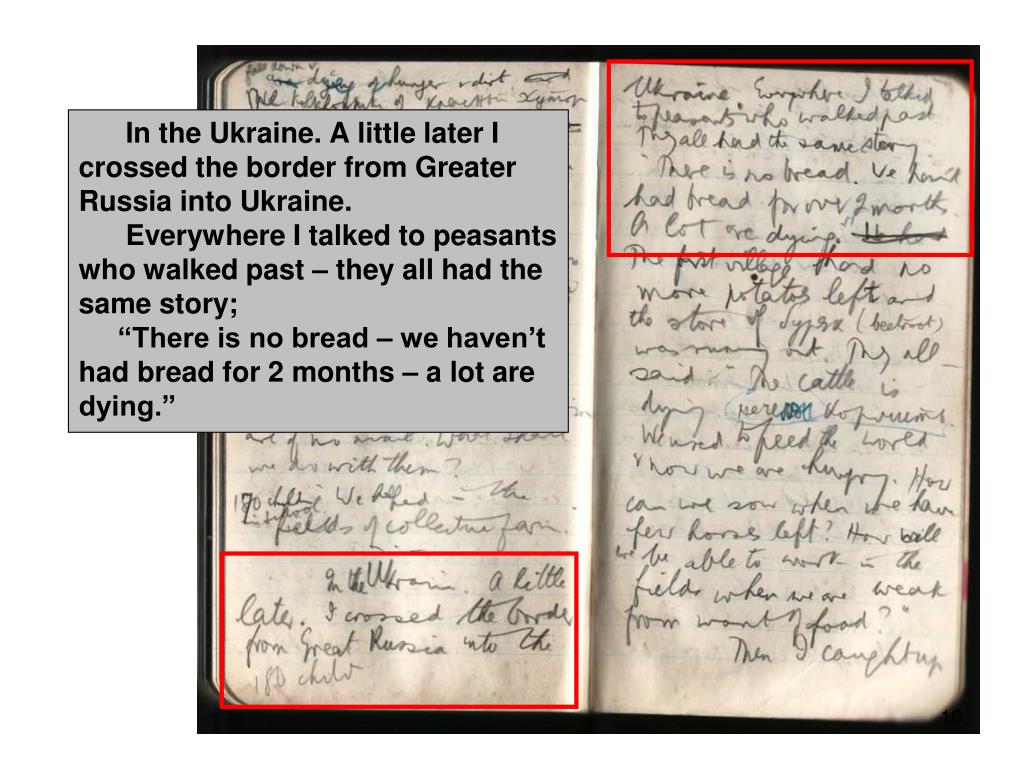 In the Ukraine. A little later I
crossed the border from Greater
Russia into Ukraine.
Everywhere I talked to peasants
who walked past – they all had the
same story;
“There is no bread – we haven’t
had bread for 2 months – a lot are
dying.”
fall down &
are dying of hunger & dirt
of
we do with them?
180 children We helped in the
in school
fields of collective farm.
In the Ukraine. A little
later. I crossed the border
from Great Russia into the
180 child
Ukraine. Everywhere I talked
to peasants who walked past
They all had the same story
"There is no bread. We haven't
had bread for over 2 months.
A lot are dying."
The first village had no
more potatos left and
the store of (beetroot)
was running out. They all
said "The cattle is
dying
We used to feed the world
& now we are hungry. How
can we sow when we have
few horses left? How will
we be able to work in the
fields when we are weak
from want of food?"
Then I caught up
10